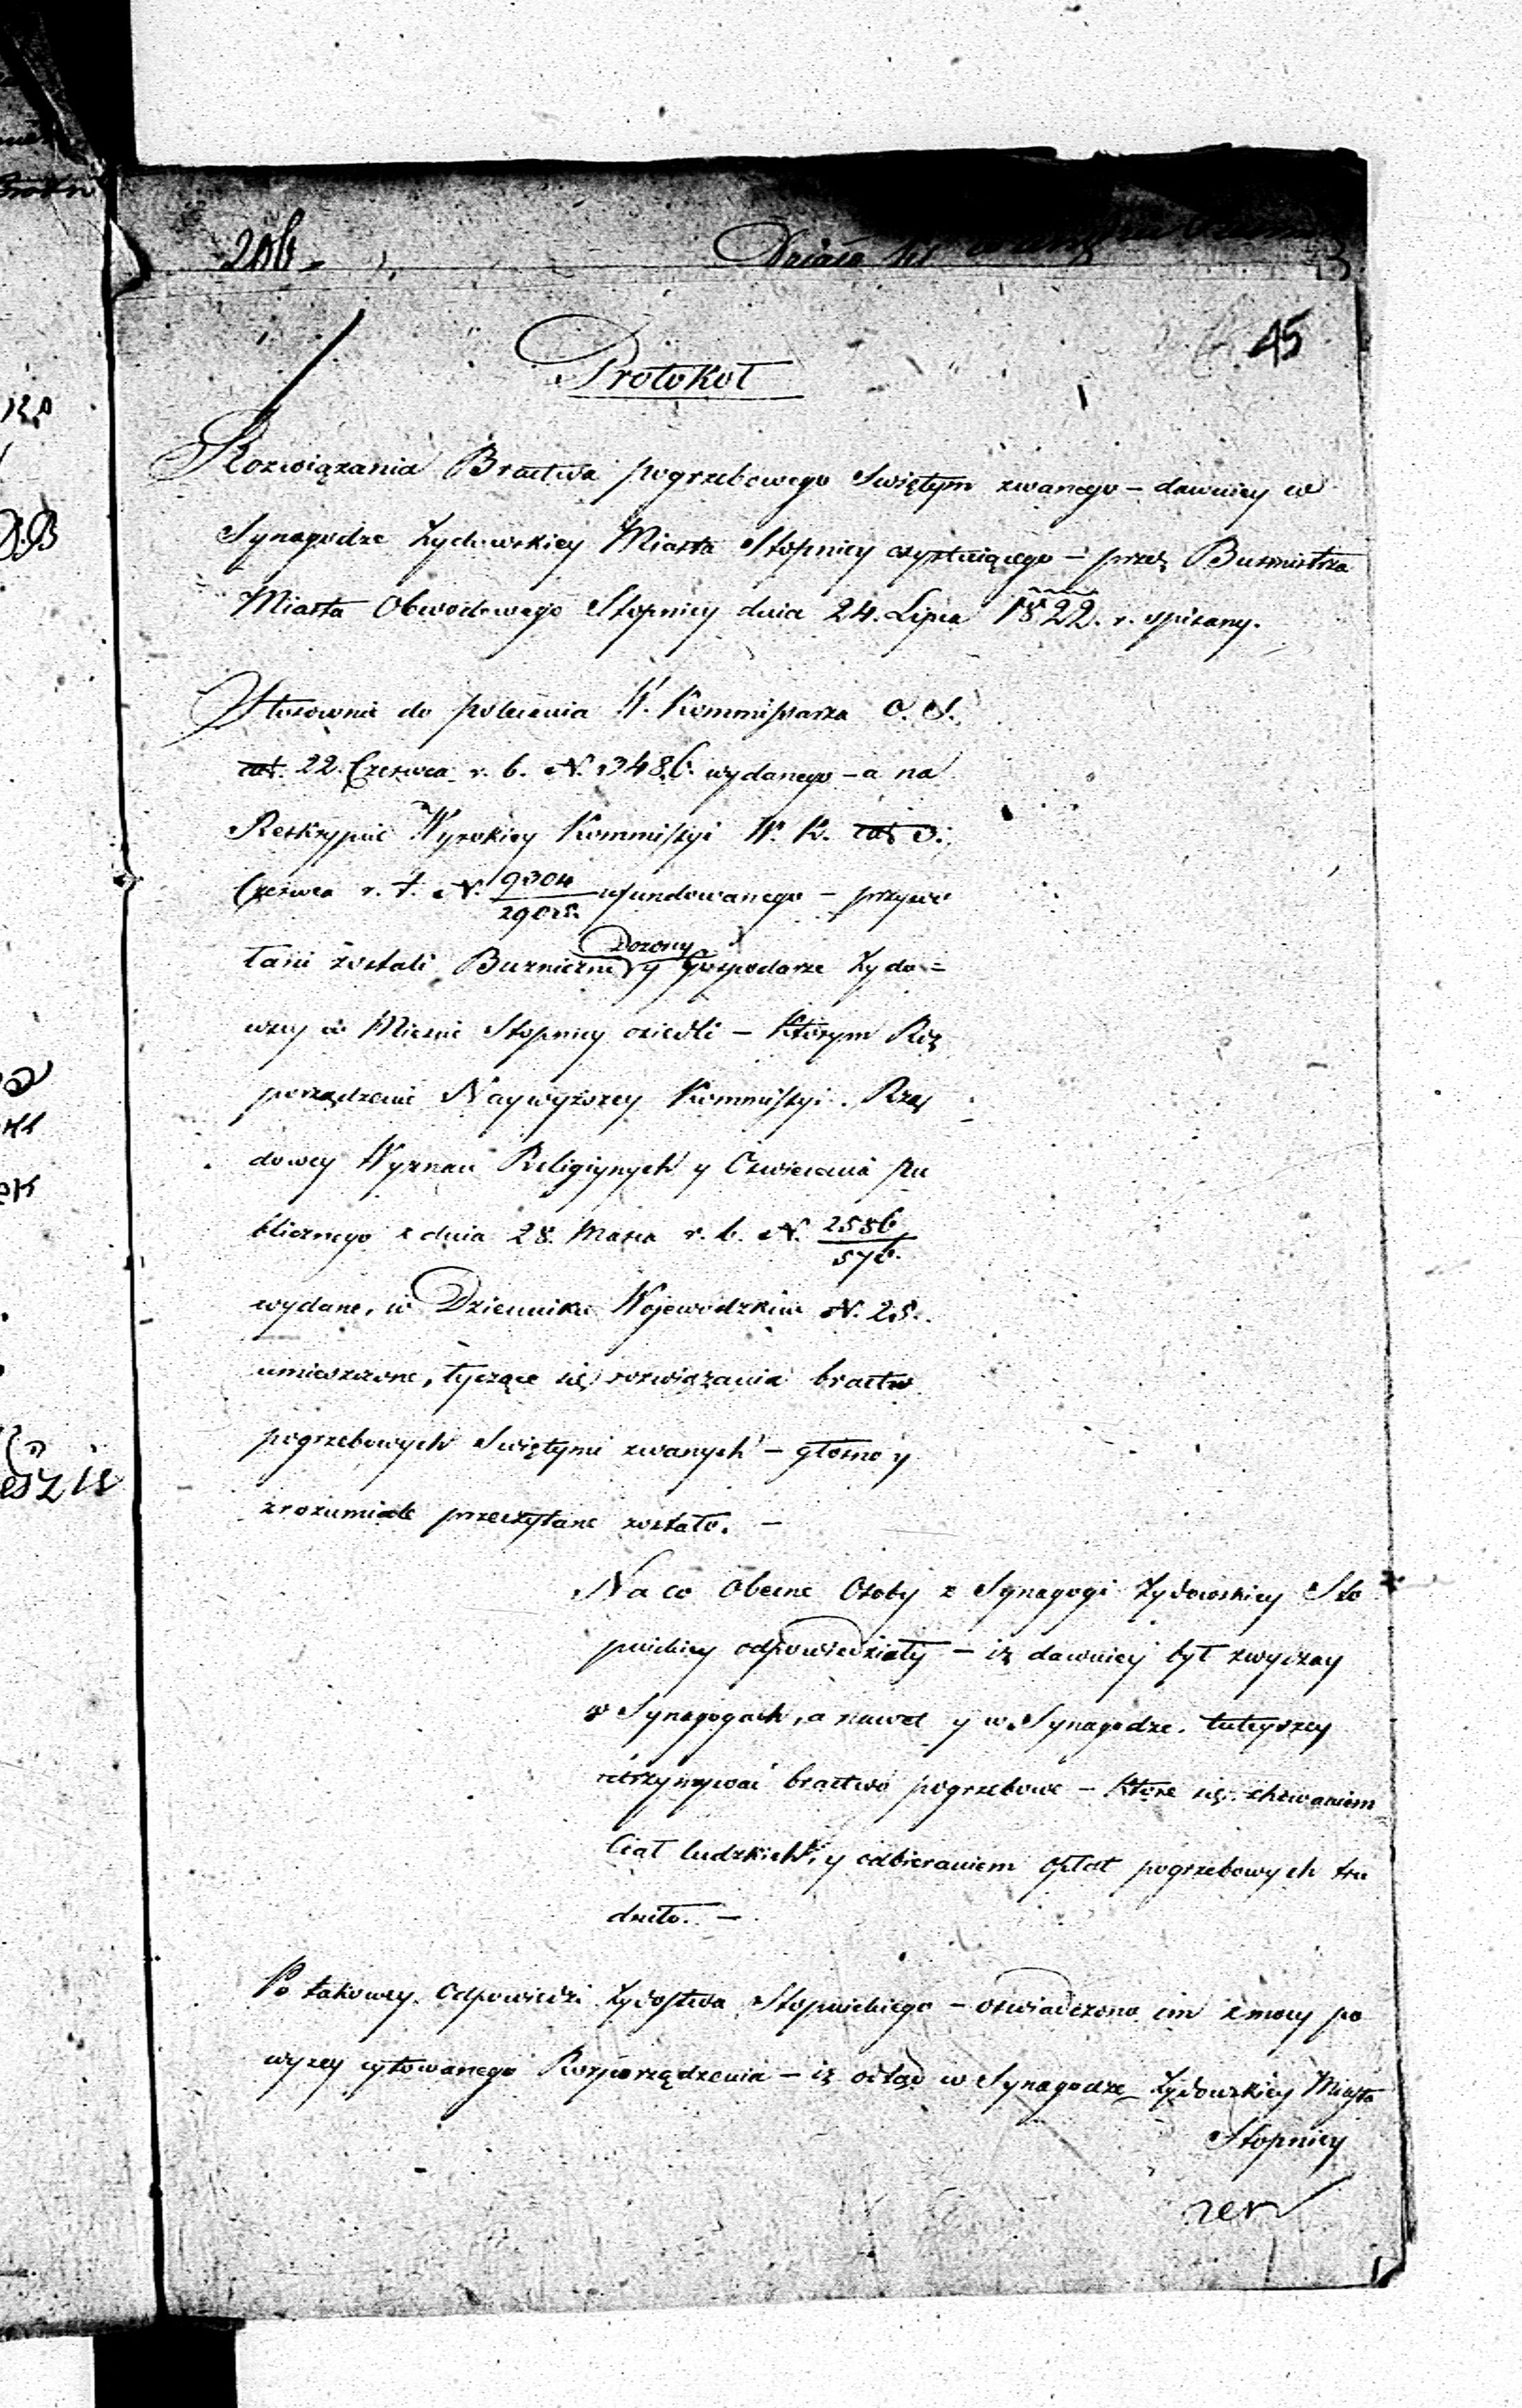 206.
Działo się w
45
Protokoł
Rozwiązania Bractwa pogrzebowego Swiętym zwanego – dawniey w
Synagodze Zydowskiey Miasta Stopnicy exystuiącego – przez Burmistrza
Miasta Obwodowego Stopnicy dnia 24. Lipca 1822. r. spisany.
Stosownie do polecenia W. Kommissarza O. S.
22. Czerwca r. b. N. 3486. wydanego – a na
Reskrypcie Wysokiey Kommissyi W. K.
Czerwca r. t. N. 9304/29028 ufundowanego – przywo
łani zostali Bużniczni Dozory y Gospodarze Zydo=
wscy w Miescie Stopnicy osiedli – którym Roz
porządzenie Naywyższey Kommissyi Rzą
dowey Wyznań Religiynych y Oswiecenia Pu
blicznego z dnia 28. Marca r. b. N. 2586/576.
wydane, w Dzienniku Wojewodzkim N. 28.
umieszczone, tyczące się rozwiązania bractw
pogrzebowych Swiętymi zwanych – głosno y
zrozumiale przeczytane zostało. –
Na co Obecne Osoby z Synagogi Zydowskiey Sto
pnickiey odpowiedziały – iż dawniey był zwyczay
w Synagogach, a nawet y w Synagodze tuteyszey
utrzymywać bractwo pogrzebowe – które się chowaniem
Ciał ludzkich, y odbieraniem opłat pogrzebowych tru
dniło. –
Po takowey Odpowiedzi Zydostwa Stopnickiego – oswiadczono im z mocy po
wyzey cytowanego Rozporządzenia – iż odtąd w Synagodze Zydowskiey Miasta
Stopnicy